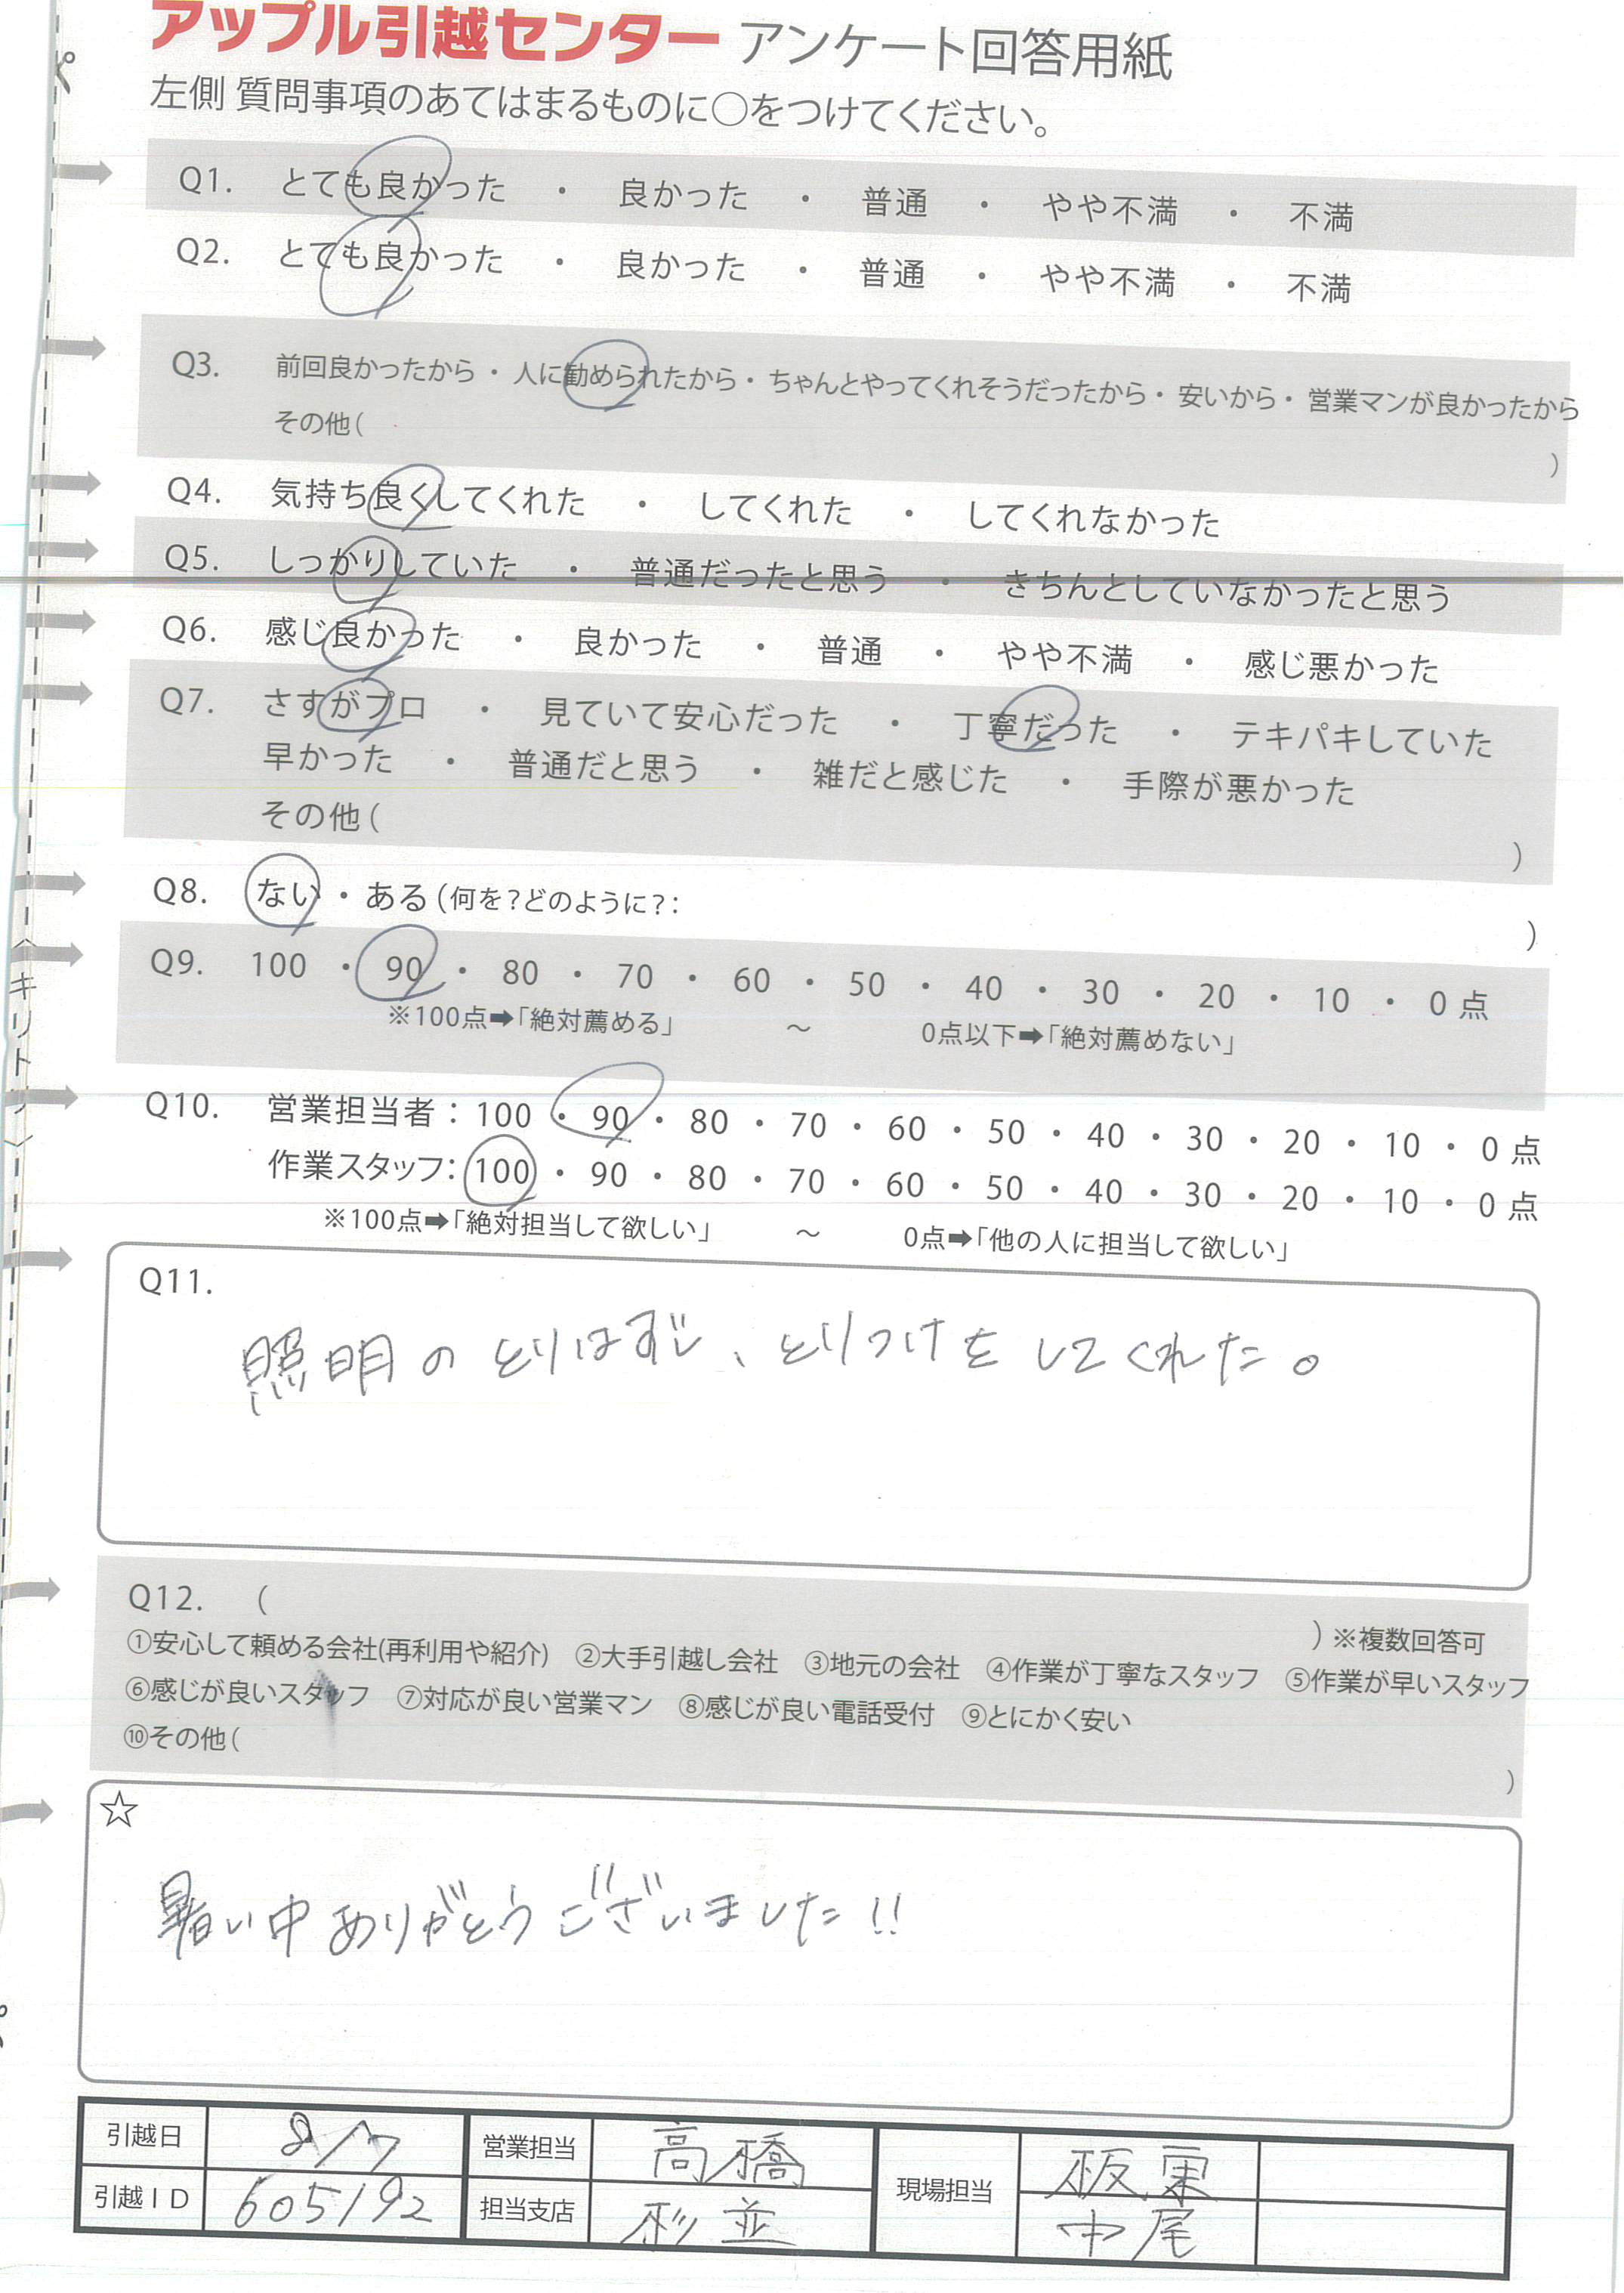 アップル引越センター アンケート回答用紙
左側 質問事項のあてはまるものに〇をつけてください。
Q1. とても良かった ・ 良かった ・ 普通 ・ やや不満 ・ 不満
Q2. とても良かった ・ 良かった ・ 普通 ・ やや不満 ・ 不満
Q3. 前回良かったから ・ 人に勧められたから ・ ちゃんとやってくれそうだったから ・ 安いから ・ 営業マンが良かったから
その他( )
Q4. 気持ち良くしてくれた ・ してくれた ・ してくれなかった
Q5. しっかりしていた ・ 普通だったと思う ・ きちんとしていなかったと思う
Q6. 感じ良かった ・ 良かった ・ 普通 ・ やや不満 ・ 感じ悪かった
Q7. さすがプロ ・ 見ていて安心だった ・ 丁寧だった ・ テキパキしていた
早かった ・ 普通だと思う ・ 雑だと感じた ・ 手際が悪かった
その他( )
Q8. ない ・ ある(何を?どのように?: )
Q9. 100 ・ 90 ・ 80 ・ 70 ・ 60 ・ 50 ・ 40 ・ 30 ・ 20 ・ 10 ・ 0 点
※100点➡「絶対薦める」 ～ 0点以下➡「絶対薦めない」
〈キリトリ〉
Q10. 営業担当者: 100 ・ 90 ・ 80 ・ 70 ・ 60 ・ 50 ・ 40 ・ 30 ・ 20 ・ 10 ・ 0 点
作業スタッフ: 100 ・ 90 ・ 80 ・ 70 ・ 60 ・ 50 ・ 40 ・ 30 ・ 20 ・ 10 ・ 0 点
※100点➡「絶対担当して欲しい」 ～ 0点➡「他の人に担当して欲しい」
Q11.
照明のとりはずし、とりつけをしてくれた。
Q12. ( ) ※複数回答可
①安心して頼める会社(再利用や紹介) ②大手引越し会社 ③地元の会社 ④作業が丁寧なスタッフ ⑤作業が早いスタッフ
⑥感じが良いスタッフ ⑦対応が良い営業マン ⑧感じが良い電話受付 ⑨とにかく安い
⑩その他( )
☆
暑い中ありがとうございました!!
引越日 8/7 営業担当 高橋 現場担当 板東
引越ID 605192 担当支店 杉並 中尾